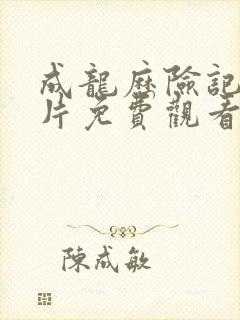 成龍歷險記
片免費觀看
陳成敏